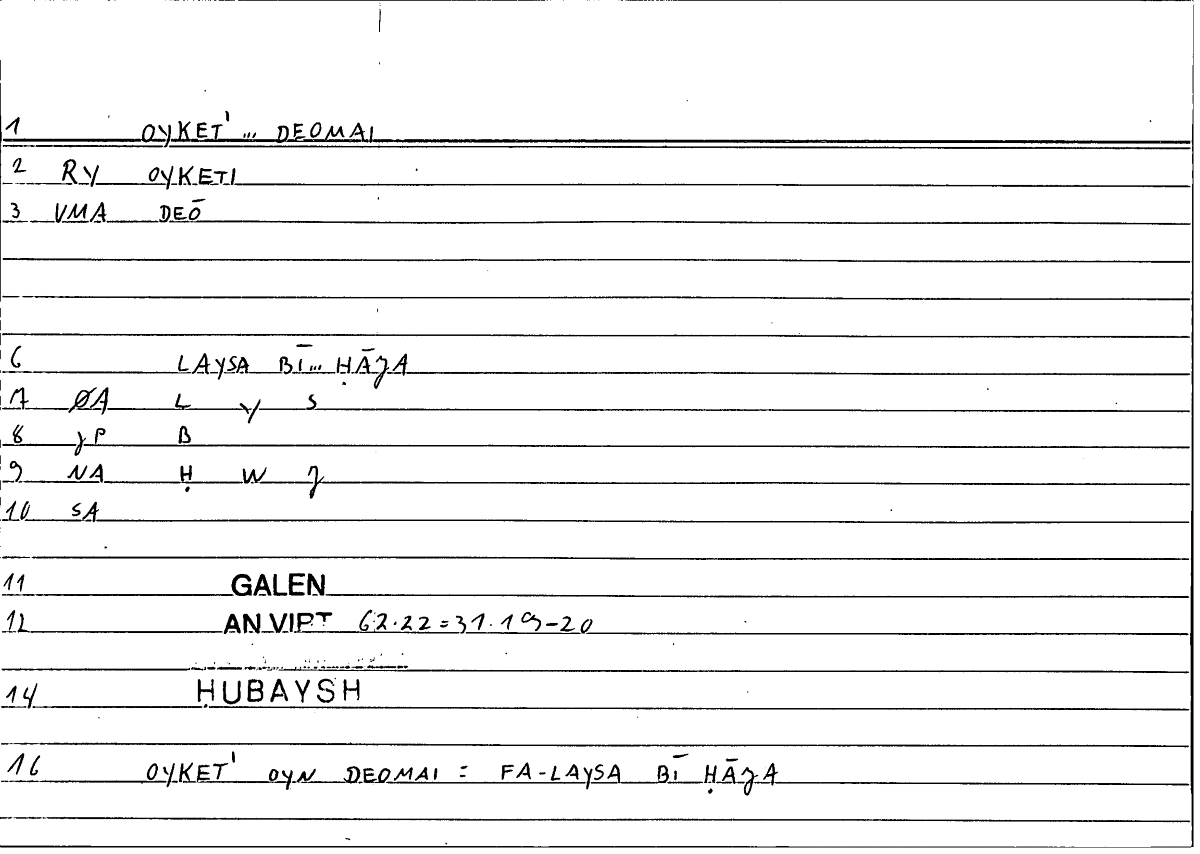 1 OYKET' ... DEOMAI
2 RY OYKETI
3 VMA DEŌ
6 LAYSA BĪ... ḤĀJA
7 ØA L Y S
8 JP B
9 NA Ḥ W J
10 SA
11 GALEN
12 AN VIRT 62.22=31.19-20
14 ḤUBAYSH
16 OYKET' OYN DEOMAI = FA-LAYSA BĪ ḤĀJA